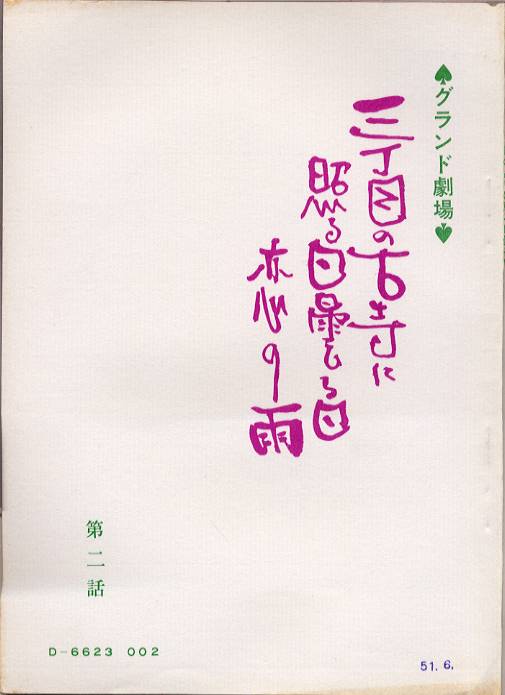 ♠グランド劇場♠
三丁目の古寺に
照る日曇る日
恋の雨
第二話
D-6623 002
51.6.